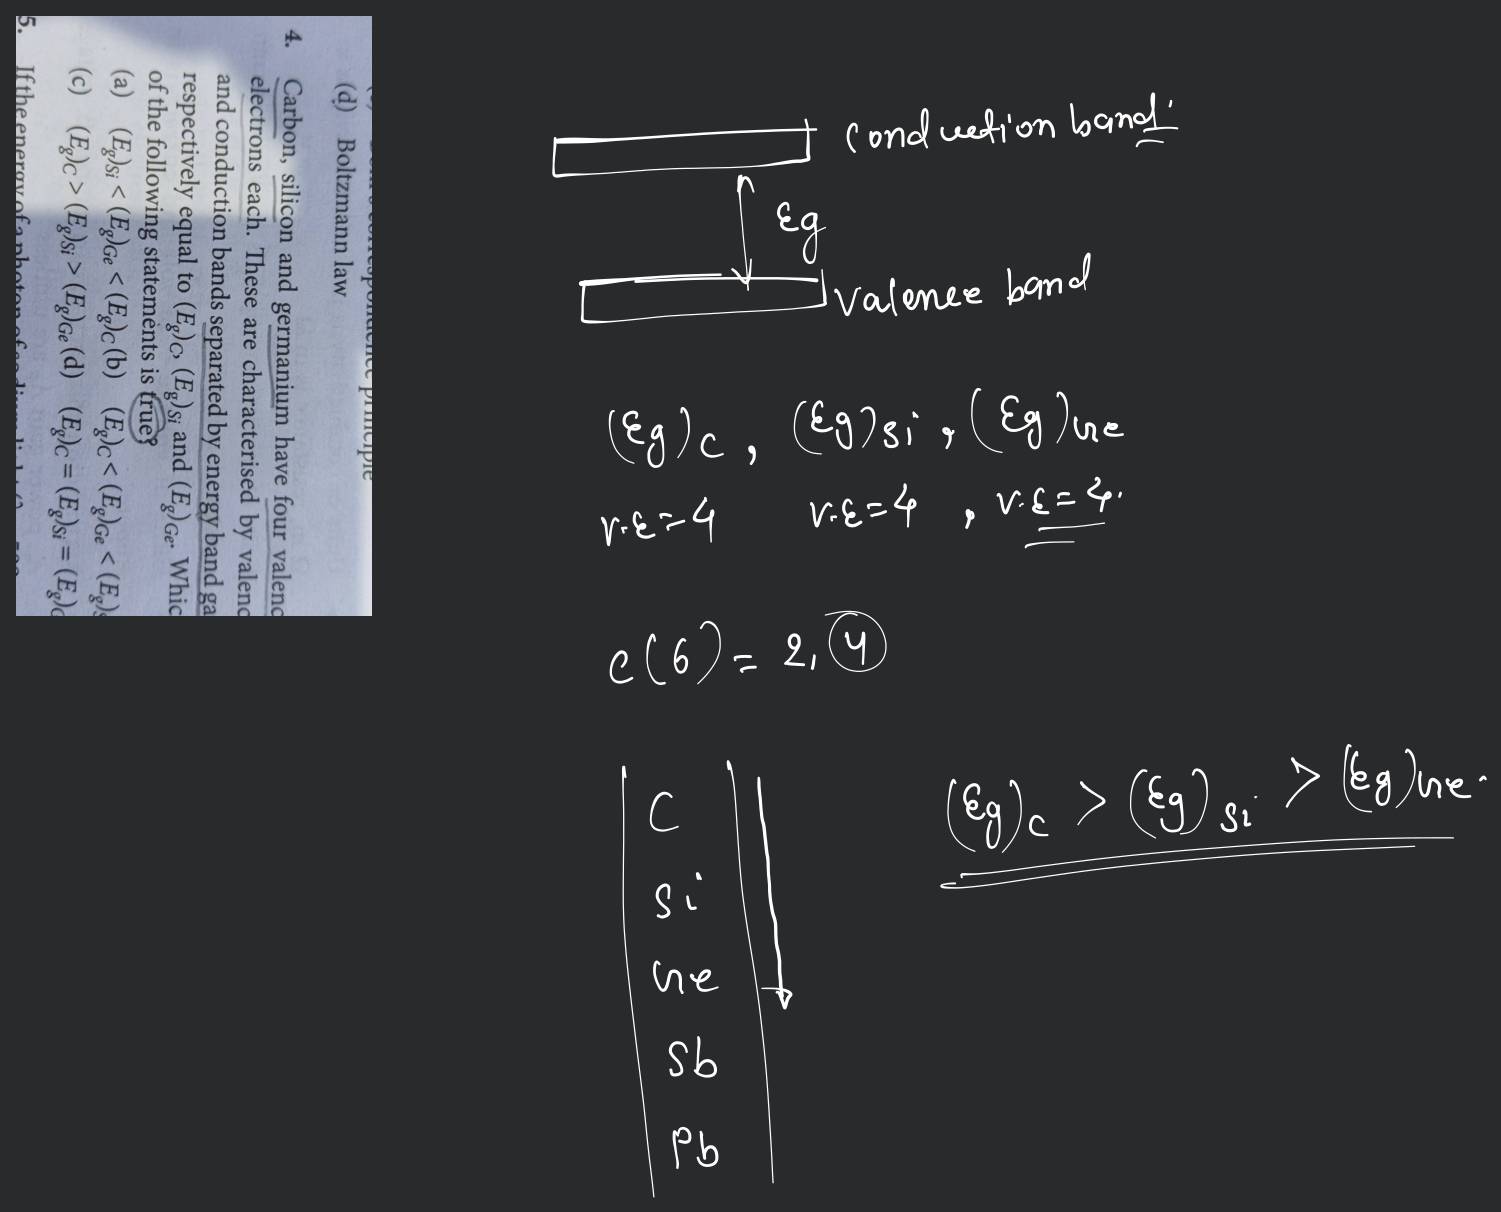 (d) Boltzmann law
4. Carbon, silicon and germanium have four valenc
electrons each. These are characterised by valenc
and conduction bands separated by energy band ga
respectively equal to (Eg)C, (Eg)Si and (Eg)Ge. Whic
of the following statements is true?
(a) (Eg)Si < (Eg)Ge < (Eg)C (b) (Eg)C < (Eg)Ge < (Eg)
(c) (Eg)C > (Eg)Si > (Eg)Ge (d) (Eg)C = (Eg)Si = (Eg)
5. If the energy of a photon of
conduction band
Eg
valence band
(Eg)C, (Eg)Si, (Eg)Ge
V.E=4 V.E=4, V.E=4.
C(6) = 2, 4
C
Si
Ge
Sb
Pb
(Eg)C > (Eg)Si > (Eg)Ge.